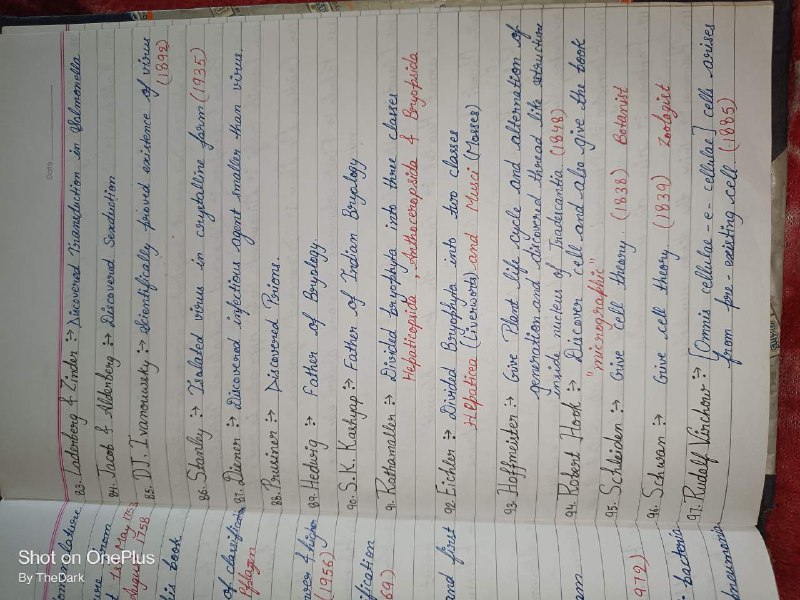 Date
83. Laderberg & Zinder :→ Discovered Transduction in Salmonella
84. Jacob & Aldenberg :→ Discovered Sexduction
85. DJ. Ivanouwsky :→ Scientifically proved existence of virus
(1892)
86. Stanley :→ Isolated virus in crystalline form (1935)
87. Diener :→ Discovered infectious agent smaller than virus.
88. Prusiner :→ Discovered Prions.
89. Hedwig :→ Father of Bryology
90. S.K. Kashyap :→ Father of Indian Bryology
91. Rothamaller :→ Divided bryophyta into three classes
Hepaticopsida, Anthoceropsida & Bryopsida
92. Eichler :→ Divided Bryophyta into two classes
Hepatica (Liverworts) and Musci (Mosses)
93. Hoffmeister :→ Give Plant life cycle and alternation of
generation and discovered thread like structure
inside nucleus of Tradescantia (1848)
94. Robert Hook :→ Discover cell and also give the book
"micrographic"
95. Schleiden :→ Give cell theory. (1838) Botanist
96. Schwan :→ Give cell theory (1839) Zoologist
97. Rudolf Virchow :→ [Omnis cellulae-e-cellulae] cells arises
from pre-existing cell (1885)
1758
his book
of classification
(1956)
ification
69)
and first
am
972)
bacteria
pneumonia
Shot on OnePlus
By TheDark